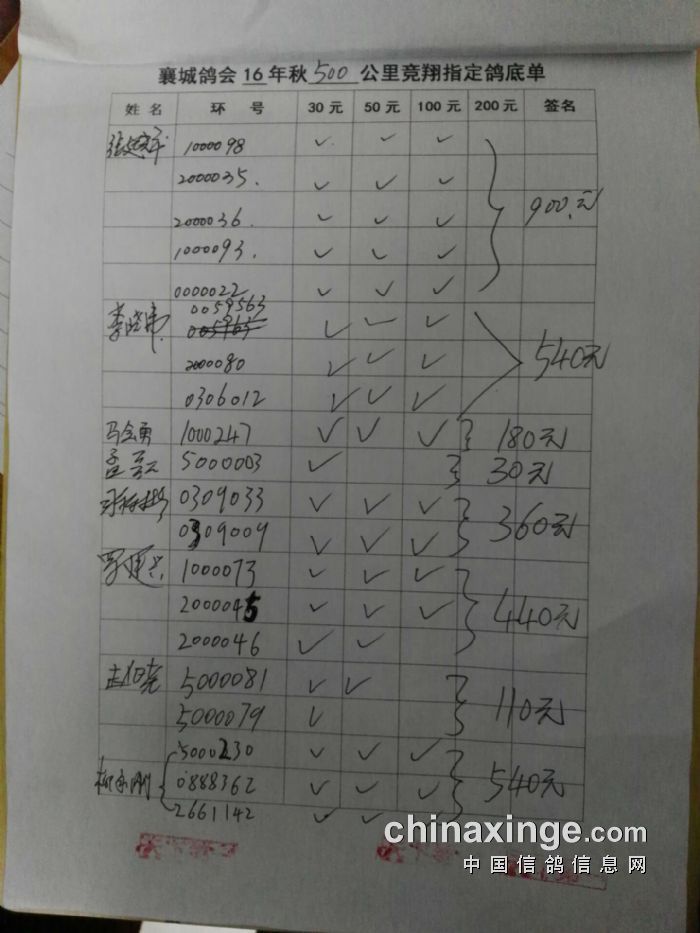 襄城鸽会 16 年秋 500 公里竞翔指定鸽底单
姓名 环号 30元 50元 100元 200元 签名
1000098 ✓ ✓ ✓
2000035. ✓ ✓ ✓
2000036. ✓ ✓ ✓ 900.元
1000093. ✓ ✓ ✓
0000022 ✓ ✓ ✓
0059563
李晓伟 ✓ ✓ ✓
2000080 ✓ ✓ ✓ 540元
0306012 ✓ ✓ ✓
马会勇 1000247 ✓ ✓ ✓ 180元
5000003 ✓ 30元
0309033 ✓ ✓ ✓ 360元
0309009 ✓ ✓ ✓
1000073 ✓ ✓ ✓
2000045 ✓ ✓ ✓ 440元
2000046 ✓ ✓
5000081 ✓ ✓ 110元
5000079 ✓
5000230 ✓ ✓ ✓
0888362 ✓ ✓ ✓ 540元
2661142 ✓ ✓
chinaxinge.com
中国信鸽信息网